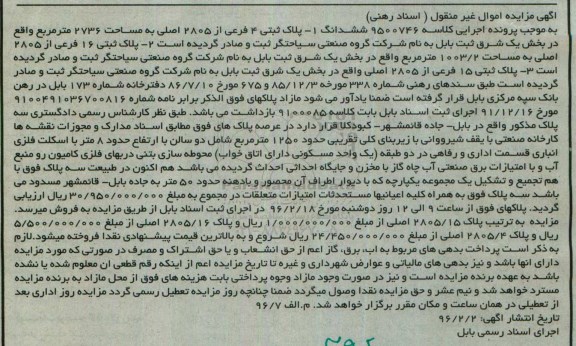 آگهی مزایده اموال غیر منقول ( اسناد رهنی)
به موجب پرونده اجرایی کلاسه ۹۵۰۰۷۴۶ ششدانگ ۱- پلاک ثبتی ۴ فرعی از ۲۸۰۵ اصلی به مساحت ۲۷۳۶ مترمربع واقع
در بخش یک شرق ثبت بابل به نام شرکت گروه صنعتی سیاحتگر ثبت و صادر گردیده است ۲- پلاک ثبتی ۱۶ فرعی از ۲۸۰۵
اصلی به مساحت ۱۰۰۳/۲ مترمربع واقع در بخش یک شرق ثبت بابل به نام شرکت گروه صنعتی سیاحتگر ثبت و صادر گردیده
است ۳- پلاک ثبتی ۱۵ فرعی از ۲۸۰۵ اصلی واقع در بخش یک شرق ثبت بابل به نام شرکت گروه صنعتی سیاحتگر ثبت و صادر
گردیده است طبق سندهای رهنی شماره ۳۳۸ مورخه ۸۵/۱۲/۳ و ۶۷۵ مورخ ۸۶/۷/۱۰ دفترخانه شماره ۱۷۳ بابل در رهن
بانک سپه مرکزی بابل قرار گرفته است ضمنا یادآور می شود مازاد پلاکهای فوق الذکر برابر نامه شماره ۹۱۰۰۴۹۱۰۳۶۷۰۰۸۱۶
مورخ ۹۱/۱۲/۱۶ اجرای ثبت اسناد بابل بابت کلاسه ۹۱۰۰۰۸۵ بازداشت می باشد. طبق نظر کارشناس رسمی دادگستری سه
پلاک مذکور واقع در بابل- جاده قائمشهر- کبودکلا قرار دارد در عرصه پلاک های فوق مطابق اسناد مدارک و مجوزات نقشه ها
کارخانه صنعتی با یقف شیرووانی با زیربنای کلی تقریبی حدود ۱۲۵۰ مترمربع شامل دو سالن با ارتفاع حدود ۸ متر با اسکلت فلزی
انباری قسمت اداری و رفاهی در دو طبقه (یک واحد مسکونی دارای اتاق خواب) محوطه سازی بتنی دربهای فلزی کامیون رو منبع
آب و با امتیازات برق صنعتی آب چاه گاز با مخزن و جایگاه احداثی احداث گردیده می باشد هم اکنون در طبیعت سه پلاک فوق با
هم تجمیع و تشکیل یک مجموعه یکپارچه که با دیوار اطراف آن محصور و بادهنه حدود ۵۰ متر به جاده بابل- قائمشهر مسدود می
باشد سه پلاک فوق به همراه کلیه اعیانیها مستحدثات امتیازات متعلقات در مجموع به مبلغ ۳۰/۹۵۰/۰۰۰/۰۰۰ ریال ارزیابی
گردید. پلاکهای فوق از ساعت ۹ الی ۱۲ روز دوشنبه مورخ ۹۶/۲/۱۸ در اجرای ثبت اسناد بابل از طریق مزایده به فروش میرسد.
مزایده به ترتیب پلاک ۲۸۰۵/۱۵ اصلی از مبلغ ۱/۰۰۰/۰۰۰/۰۰۰ ریال و پلاک ۲۸۰۵/۱۶ اصلی از مبلغ ۵/۵۰۰/۰۰۰/۰۰۰
ریال و پلاک ۲۸۰۵/۴ اصلی از مبلغ ۲۴/۴۵۰/۰۰۰/۰۰۰ ریال شروع و به بالاترین قیمت پیشنهادی نقدا فروخته میشود.لازم
به ذکر است پرداخت بدهی های مربوط به اب، برق، گاز اعم از حق انشعاب و یا حق اشتراک و مصرف در صورتی که مورد مزایده
دارای انها باشد و نیز بدهی های مالیاتی و عوارض شهرداری و غیره تا تاریخ مزایده اعم از اینکه رقم قطعی ان معلوم شده یا نشده
باشد به عهده برنده مزایده است و نیز در صورت وجود مازاد وجوه پرداختی بابت هزینه های فوق از محل مازاد به برنده مزایده
مسترد خواهد شد و نیم عشر و حق مزایده نقدا وصول میگردد ضمنا چنانچه روز مزایده تعطیل رسمی گردد مزایده روز اداری بعد
از تعطیلی در همان ساعت و مکان مقرر برگزار خواهد شد. م.الف ۹۶/۷
تاریخ انتشار آگهی: ۹۶/۲/۲
اجرای اسناد رسمی بابل